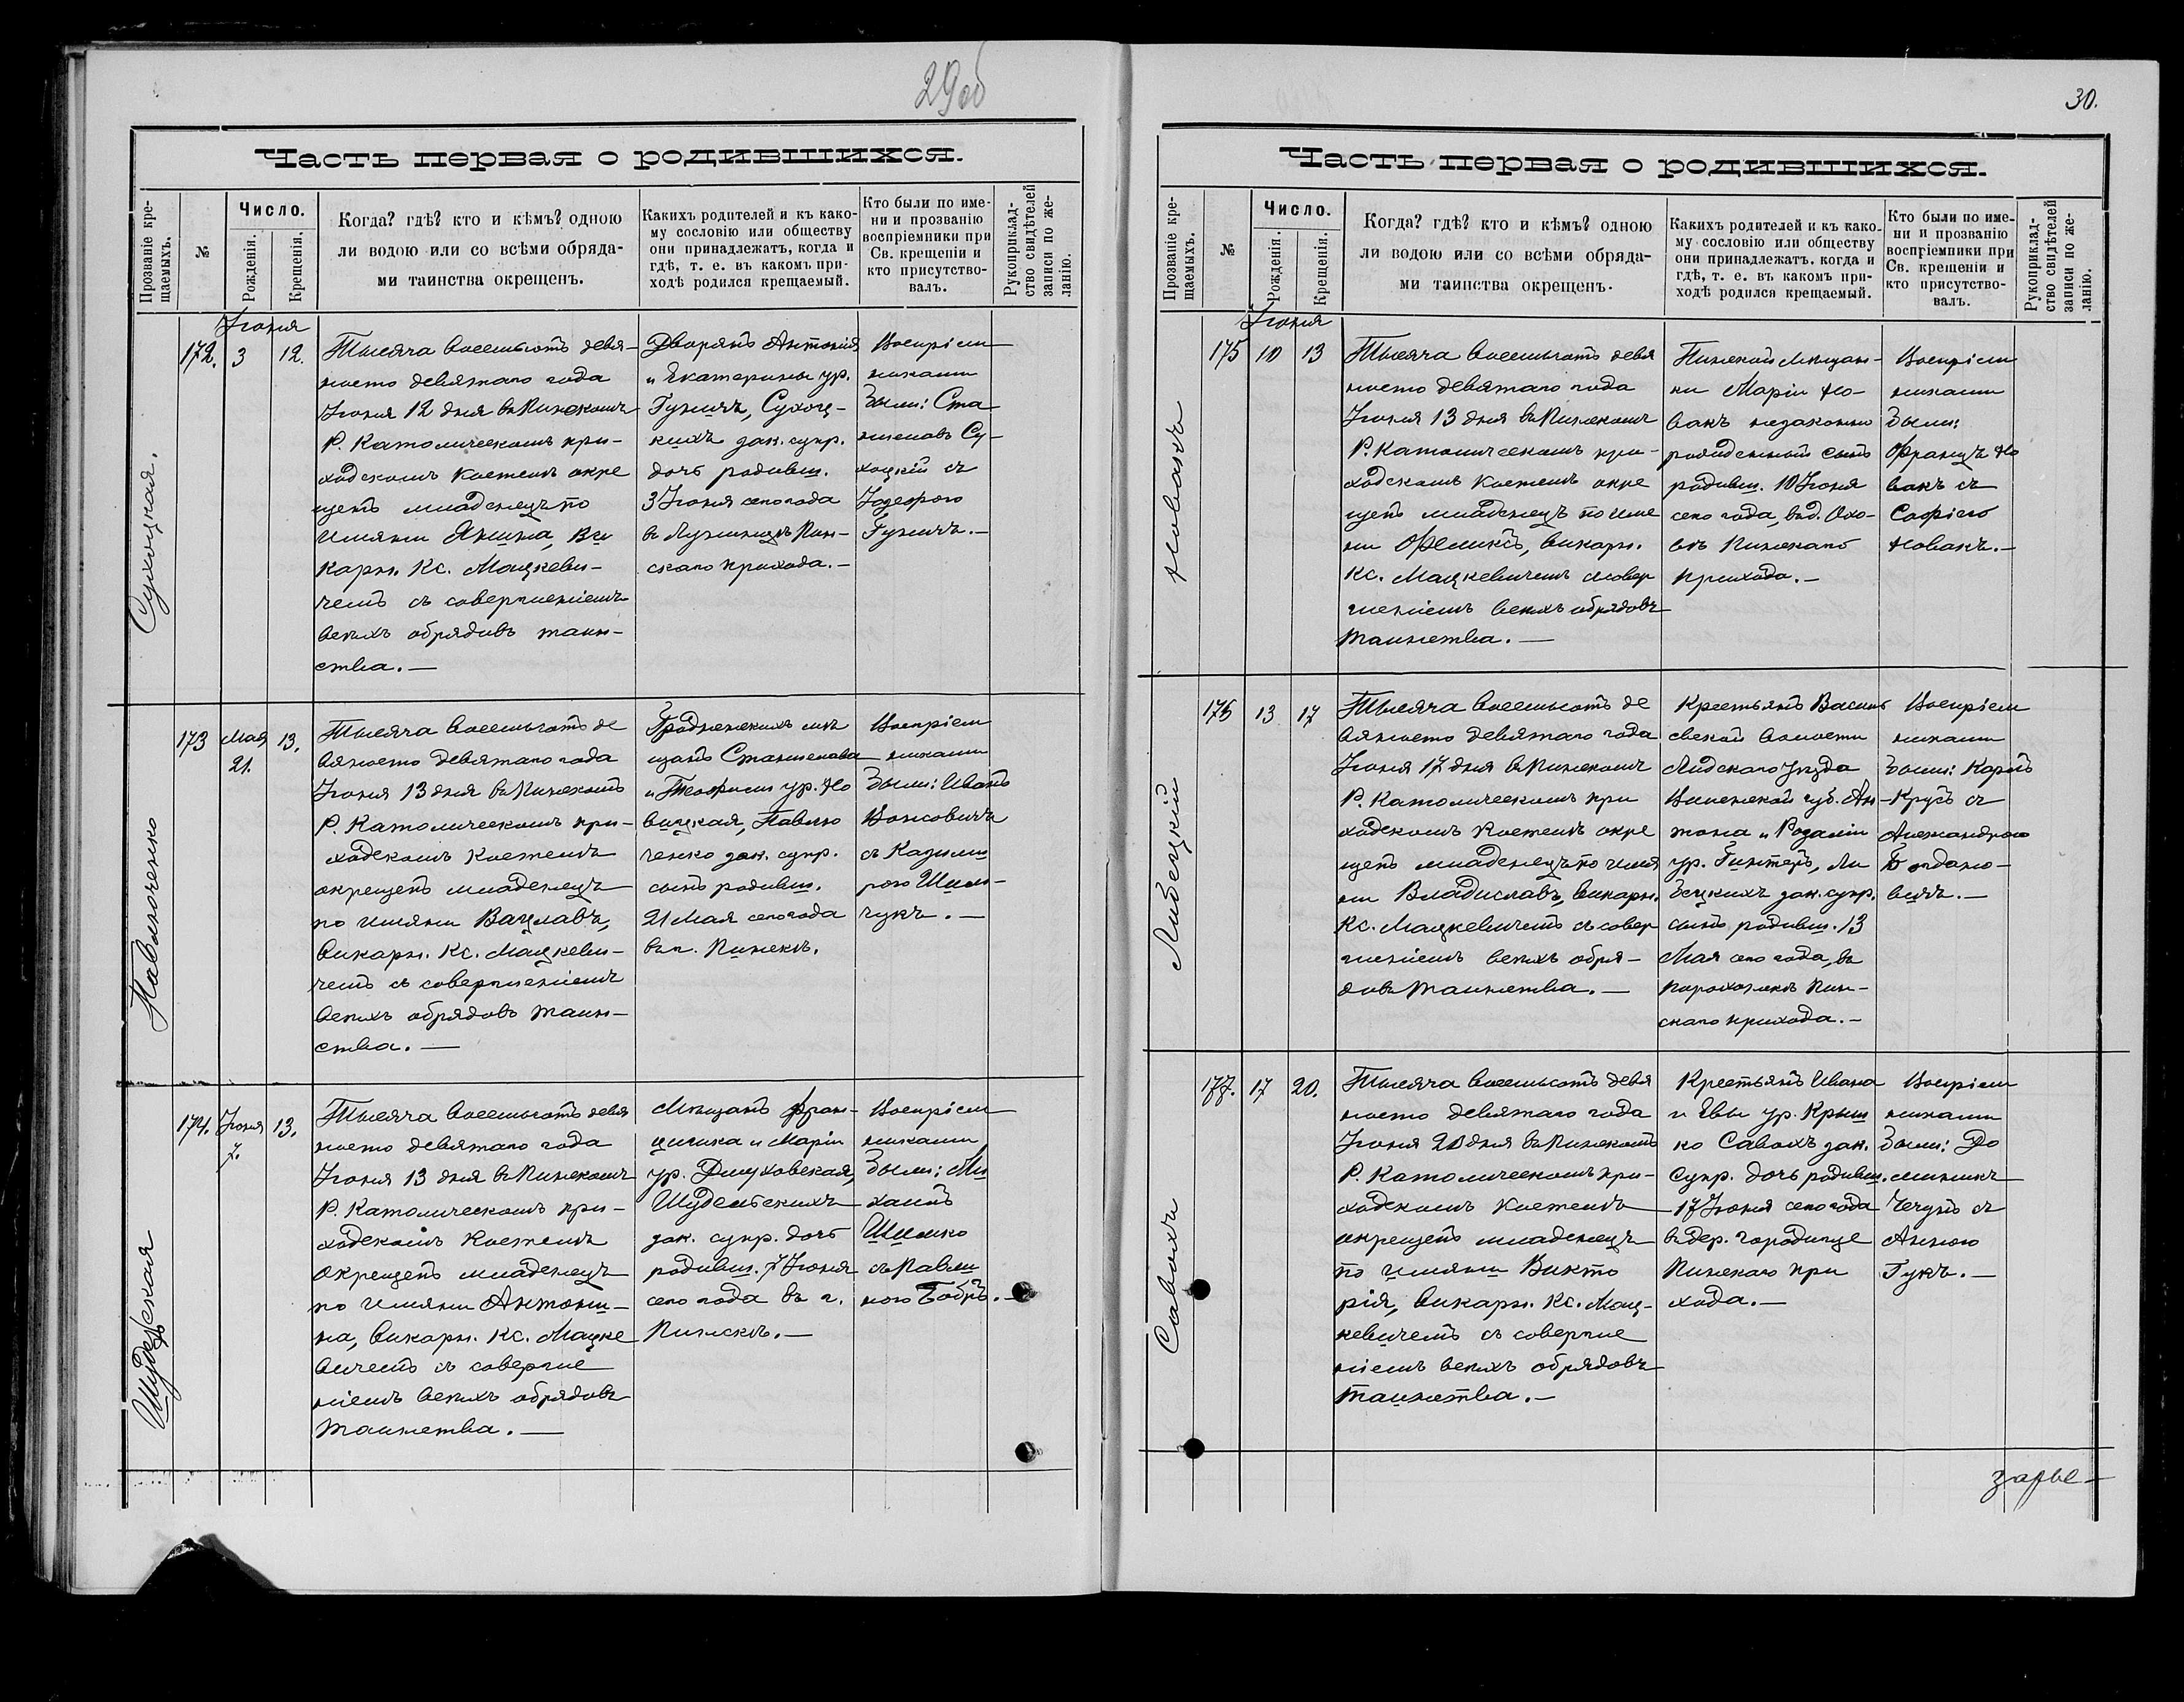 29об
Часть первая о родившихся.
Прозваніе кре-
щаемыхъ.
№
Число.
Рожденія.
Крещенія.
Когда? гдѣ? кто и кѣмъ? одною
ли водою или со всѣми обряда-
ми таинства окрещенъ.
Какихъ родителей и къ како-
му сословію или обществу
они принадлежатъ, когда и
гдѣ, т. е. въ какомъ при-
ходѣ родился крещаемый.
Кто были по име-
ни и прозванію
воспріемники при
Св. крещеніи и
кто присутство-
валъ.
Рукоприклад-
ство свидѣтелей
записи по же-
ланію.
Сухоцкая.
172.
Іюня
3
12.
Тысяча восемьсотъ девя-
носто девятаго года
Іюня 12 дня въ Пинскомъ
Р. Католическомъ при-
ходскомъ костелѣ окре
щенъ младенецъ по
имяни Янина, Ви
карн. Кс. Мацкеви-
чемъ съ совершеніемъ
всѣхъ обрядовъ таин-
ства.—
Дворянъ Антонія
и Екатерины ур.
Гуничъ, Сухоц-
кихъ зак. супр.
дочь родивш.
3 Іюня сего года
въ Лузинцѣ Пин-
скаго прихода.—
Воспріем
никами
были: Ста
ниславъ Су-
хоцкій съ
Іозефою
Гуничъ.—
Павлюченко
173
Мая
21.
13.
Тысяча восемьсотъ де
вяносто девятаго года
Іюня 13 дня въ Пинскомъ
Р. Католическомъ при-
ходскомъ костелѣ
окрещенъ младенецъ
по имяни Вацлавъ,
викарн. Кс. Мацкеви-
чемъ съ совершеніемъ
всѣхъ обрядовъ таин-
ства.—
Гродненскихъ мѣ
щанъ Станислава
и Теофили ур. Но
вицкая, Павлю
ченко зак. супр.
сынъ родивш.
21 Мая сего года
въ г. Пинскѣ.
Воспріем
никами
были: Иванъ
Вонсовичъ
съ Казими
рою Шим-
чукъ.—
Шудельская
174.
Іюня
7.
13.
Тысяча восемьсотъ девя
носто девятаго года
Іюня 13 дня въ Пинскомъ
Р. Католическомъ при-
ходскомъ костелѣ
окрещенъ младенецъ
по имяни Антони-
на, викарн. Кс. Мацке
вичемъ съ соверше
ніемъ всѣхъ обрядовъ
таинства.—
Мѣщанъ Фран-
цишка и Маріи
ур. Длуховская,
Шудельскихъ
зак. супр. дочь
родивш. 7 Іюня
сего года въ г.
Пинскѣ.—
Воспріем
никами
были: Ми
хаилъ
Шимко
съ Павли
ною Бобръ.—
30.
Часть первая о родившихся.
Прозваніе кре-
щаемыхъ.
№
Число.
Рожденія.
Крещенія.
Когда? гдѣ? кто и кѣмъ? одною
ли водою или со всѣми обряда-
ми таинства окрещенъ.
Какихъ родителей и къ како-
му сословію или обществу
они принадлежатъ. когда и
гдѣ, т. е. въ какомъ при-
ходѣ родился крещаемый.
Кто были по име-
ни и прозванію
воспріемники при
Св. крещеніи и
кто присутство-
валъ.
Рукоприклад-
ство свидѣтелей
записи по же-
ланію.
Новакъ
175
Іюня
10
13
Тысяча восемьсотъ девя
носто девятаго года
Іюня 13 дня въ Пинскомъ
Р. Католическомъ при-
ходскомъ костелѣ окре
щенъ младенецъ по име
ни Феликсъ, викарн.
Кс. Мацкевичемъ съ совер
шеніемъ всѣхъ обрядовъ
таинства.—
Пинской мѣщан-
ки Маріи Но-
вакъ незаконно
рожденный сынъ
родивш. 10 Іюня
сего года, въ д. Охо-
вѣ Пинскаго
прихода.—
Воспріем
никами
были:
Францъ Но
вакъ съ
Софіею
Новакъ.—
Либецкій
176
13
17
Тысяча восемьсотъ де
вяносто девятаго года
Іюня 17 дня въ Пинскомъ
Р. Католическомъ при
ходскомъ костелѣ окре
щенъ младенецъ по имя
ни Владиславъ, викарн.
Кс. Мацкевичемъ съ совер
шеніемъ всѣхъ обря-
довъ таинства.—
Крестьянъ Василь
свской волости
Лидскаго уѣзда
Виленской губ. Ан-
тона и Розаліи
ур. Гинтеръ, Ли
бецкихъ зак. супр.
сынъ родивш. 13
Мая сего года, въ
Порохонскѣ Пин-
скаго прихода.—
Воспріем
никами
были: Карлъ
Крусъ съ
Александрою
Богдано-
вичъ.—
Савохъ
177.
17
20.
Тысяча восемьсотъ девя
носто девятаго года
Іюня 20 дня въ Пинскомъ
Р. Католическомъ при-
ходскомъ костелѣ
окрещенъ младенецъ
по имяни Викто
рія, викарн. Кс. Мац-
кевичемъ съ соверше
ніемъ всѣхъ обрядовъ
таинства.—
Крестьянъ Ивана
и Евы ур. Крыш
ко Савохъ зак.
супр. дочь родивш.
17 Іюня сего года
въ дер. Городище
Пинскаго при
хода.—
Воспріем
никами
были: До
миникъ
Чечунъ съ
Анною
Гукъ.—